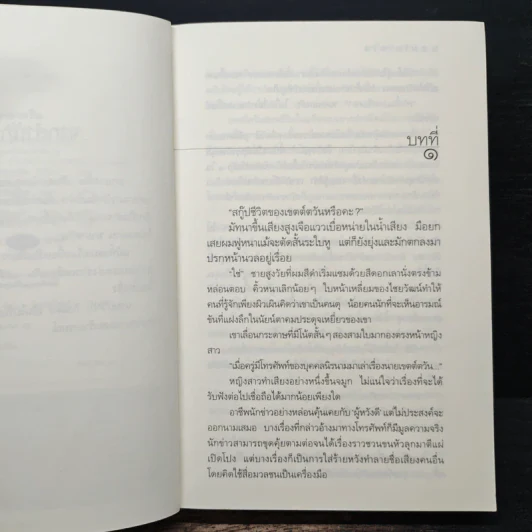 บทที่
๑
"สกู๊ปชีวิตของเขตต์ตวันหรือคะ ?"
มัทนาขึ้นเสียงสูงเจือแววเบื่อหน่ายในน้ำเสียง มือยก
เสยผมฟูหนาแม้จะตัดสั้นระใบหู แต่ก็ยังยุ่งและมักตกลงมา
ปรกหน้านวลอยู่เรื่อย
"ใช่" ชายสูงวัยที่ผมสีดำเริ่มแซมด้วยสีดอกเลานั่งตรงข้าม
หล่อนตอบ คิ้วหนาเลิกน้อยๆ ใบหน้าเหลี่ยมของไชยวัฒน์ทำให้
คนที่รู้จักเพียงผิวเผินคิดว่าเขาเป็นคนดุ น้อยคนนักที่จะเห็นอารมณ์
ขันที่แฝงลึกในนัยน์ตาคมประดุจเหยี่ยวของเขา
เขาเลื่อนกระดาษที่มีโน้ตสั้นๆ สองสามใบมากองตรงหน้าหญิง
สาว
"เมื่อครู่มีโทรศัพท์ของบุคคลนิรนามมาเล่าเรื่องนายเขตต์ตวัน..."
หญิงสาวทำเสียงอย่างหนึ่งขึ้นจมูก ไม่แน่ใจว่าเรื่องที่จะได้
รับฟังต่อไปเชื่อถือได้มากน้อยเพียงใด
อาชีพนักข่าวอย่างหล่อนคุ้นเคยกับ 'ผู้หวังดี' แต่ไม่ประสงค์จะ
ออกนามเสมอ บางเรื่องที่กล่าวอ้างมาทางโทรศัพท์ก็มีมูลความจริง
นักข่าวสามารถขุดคุ้ยตามต่อจนได้เรื่องราวชวนขนหัวลุกมาตีแผ่
เปิดโปง แต่บางเรื่องก็เป็นการใส่ร้ายหวังทำลายชื่อเสียงคนอื่น
โดยคิดใช้สื่อมวลชนเป็นเครื่องมือ